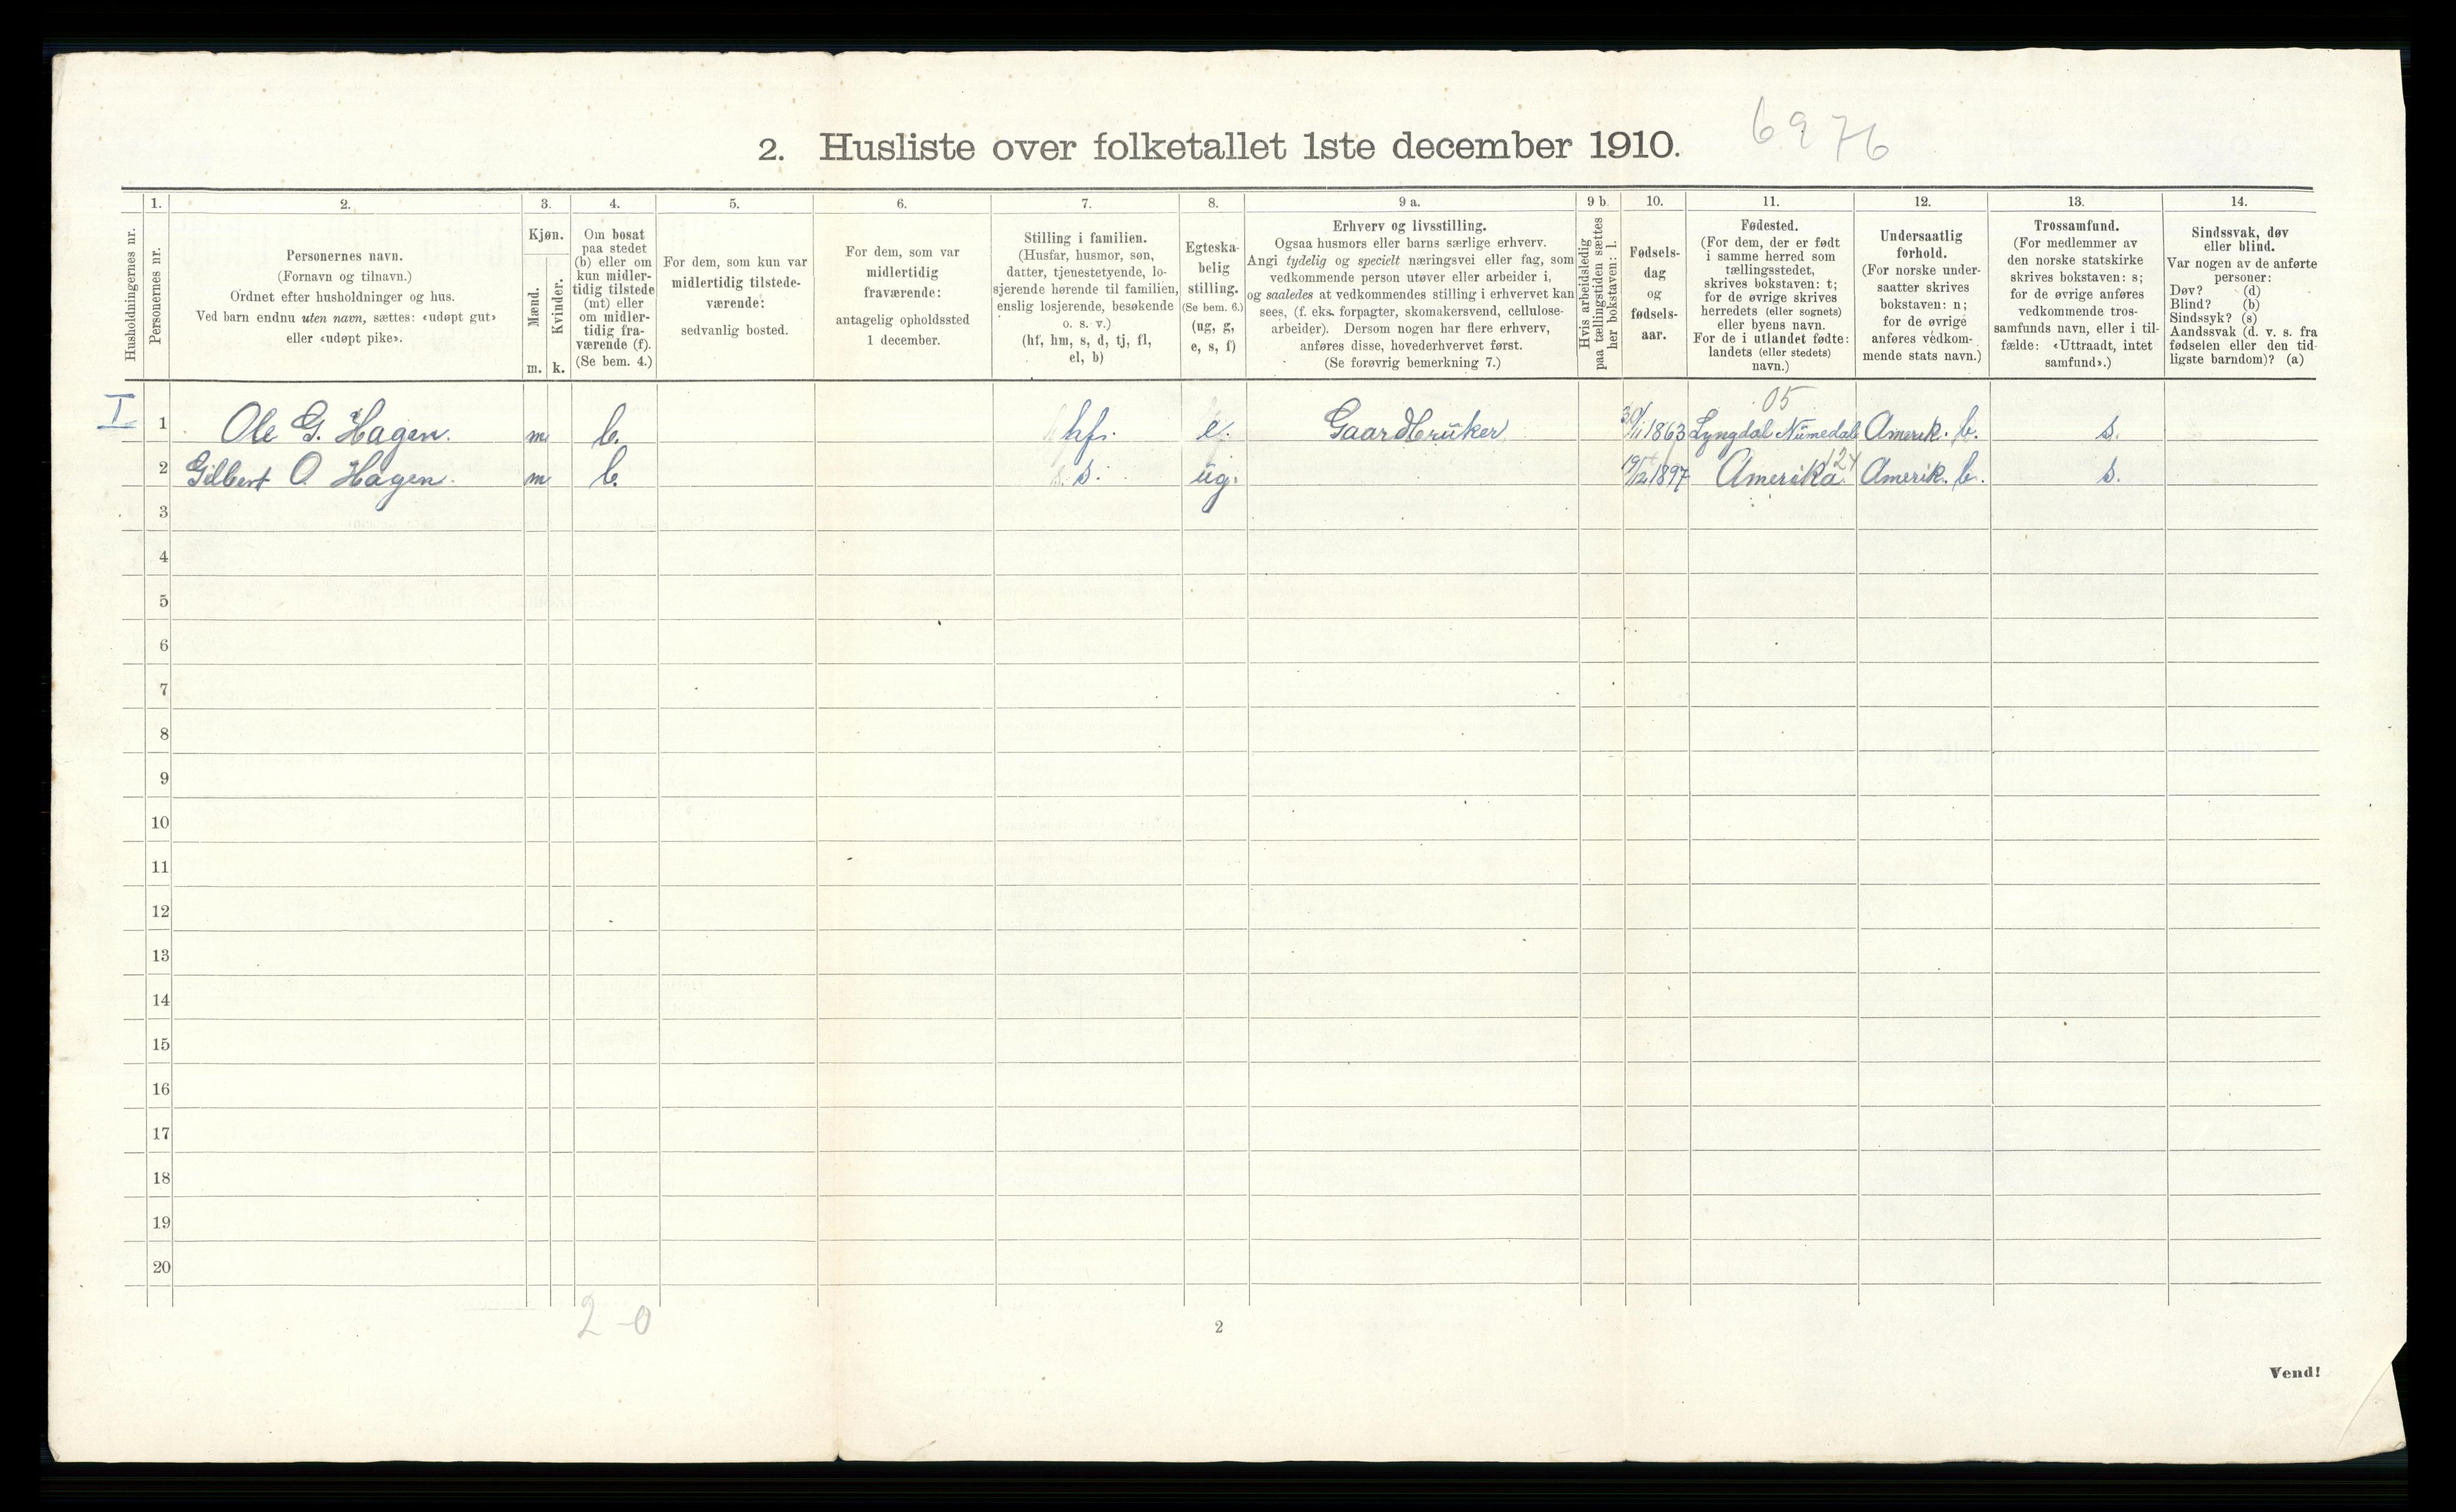 2. Husliste over folketallet 1ste december 1910.
6976
Husholdningernes nr.
1.
Personernes nr.
2.
Personernes navn.
(Fornavn og tilnavn.)
Ordnet efter husholdninger og hus.
Ved barn endnu uten navn, sættes: «udøpt gut»
eller «udøpt pike».
3.
Kjøn.
Mænd.
Kvinder.
m. k.
4.
Om bosat
paa stedet
(b) eller om
kun midler-
tidig tilstede
(mt) eller
om midler-
tidig fra-
værende (f).
(Se bem. 4.)
5.
For dem, som kun var
midlertidig tilstede-
værende:
sedvanlig bosted.
6.
For dem, som var
midlertidig
fraværende:
antagelig opholdssted
1 december.
7.
Stilling i familien.
(Husfar, husmor, søn,
datter, tjenestetyende, lo-
sjerende hørende til familien,
enslig losjerende, besøkende
o. s. v.)
(hf, hm, s, d, tj, fl,
el, b)
8.
Egteska-
belig
stilling.
(Se bem. 6.)
(ug, g,
e, s, f)
9 a.
Erhverv og livsstilling.
Ogsaa husmors eller barns særlige erhverv.
Angi tydelig og specielt næringsvei eller fag, som
vedkommende person utøver eller arbeider i,
og saaledes at vedkommendes stilling i erhvervet kan
sees, (f. eks. forpagter, skomakersvend, cellulose-
arbeider). Dersom nogen har flere erhverv,
anføres disse, hovederhvervet først.
(Se forøvrig bemerkning 7.)
9 b.
Hvis arbeidsledig
paa tællingstiden sættes
her bokstaven: l.
10.
Fødsels-
dag
og
fødsels-
aar.
11.
Fødested.
(For dem, der er født
i samme herred som
tællingsstedet,
skrives bokstaven: t;
for de øvrige skrives
herredets (eller sognets)
eller byens navn.
For de i utlandet fødte:
landets (eller stedets)
navn.)
12.
Undersaatlig
forhold.
(For norske under-
saatter skrives
bokstaven: n;
for de øvrige
anføres vedkom-
mende stats navn.)
13.
Trossamfund.
(For medlemmer av
den norske statskirke
skrives bokstaven: s;
for de øvrige anføres
vedkommende tros-
samfunds navn, eller i til-
fælde: «Uttraadt, intet
samfund».)
14.
Sindssvak, døv
eller blind.
Var nogen av de anførte
personer:
Døv? (d)
Blind? (b)
Sindssyk? (s)
Aandssvak (d. v. s. fra
fødselen eller den tid-
ligste barndom)? (a)
05
I 1 Ole G. Hagen. m b. hf. e. Gaardbruker 30/11 1863 Lyngdal Numedal Amerik. b. s.
124
2 Gilbert O. Hagen. m b. s. ug. 19/12 1897 Amerika Amerik. b. s.
3
4
5
6
7
8
9
10
11
12
13
14
15
16
17
18
19
20
2-0
2
Vend!